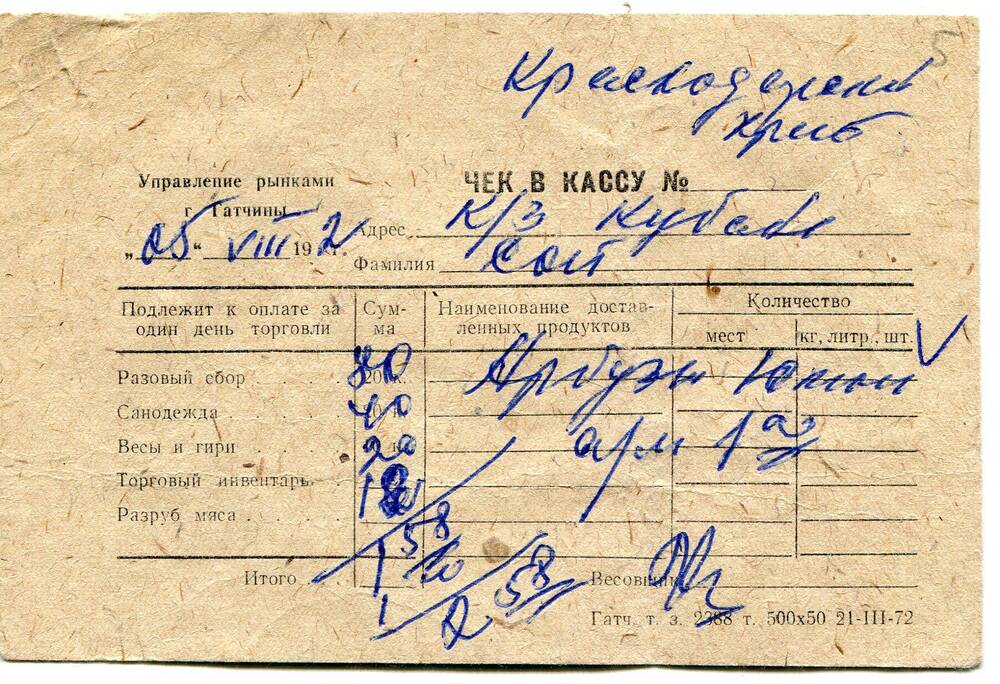 5
Краснодарский
край
Управление рынками
г. Гатчины
ЧЕК В КАССУ №
„05“ VIII 1972 г.
Адрес к/з Кубань
Фамилия
Подлежит к оплате за один день торговли
Сумма
Наименование доставленных продуктов
Количество
мест
кг, литр., шт.
Разовый сбор
Арбузы
Санодежда 40
Весы и гири 20
Торговый инвентарь
Разруб мяса
1 58
Итого
2 58
Весовщик
Гатч. т. з. 2388 т. 500х50 21-III-72